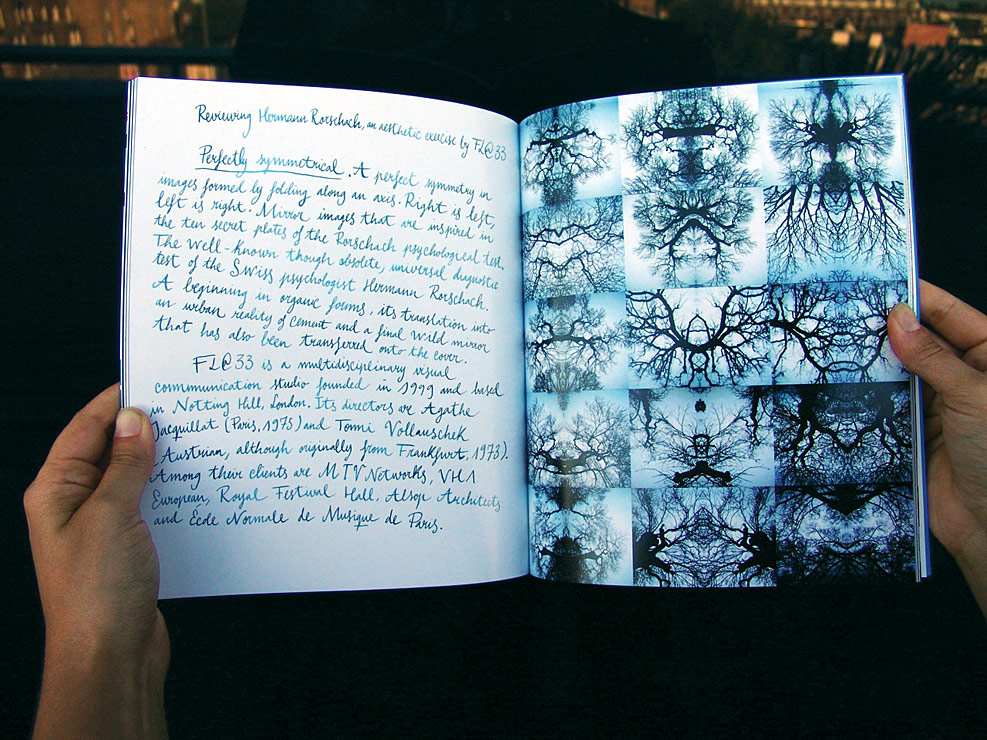 Reviewing Hermann Rorschach, an aesthetic exercise by FL@33
Perfectly symmetrical. A perfect symmetry in
images formed by folding along an axis. Right is left,
left is right. Mirror images that are inspired in
the ten secret plates of the Rorschach psychological test.
The well-known though obsolete, universal diagnostic
test of the Swiss psychologist Hermann Rorschach.
A beginning in organic forms, its translation into
an urban reality of cement and a final wild mirror
that has also been transferred onto the cover.
FL@33 is a multidisciplinary visual
communication studio founded in 1999 and based
in Notting Hill, London. Its directors are Agathe
Jacquillat (Paris, 1975) and Tomi Vollauschek
(Austrian, although originally from Frankfurt, 1973).
Among their clients are MTV Networks, VH1
European, Royal Festival Hall, Alsop Architects
and Ecole Normale de Musique de Paris.